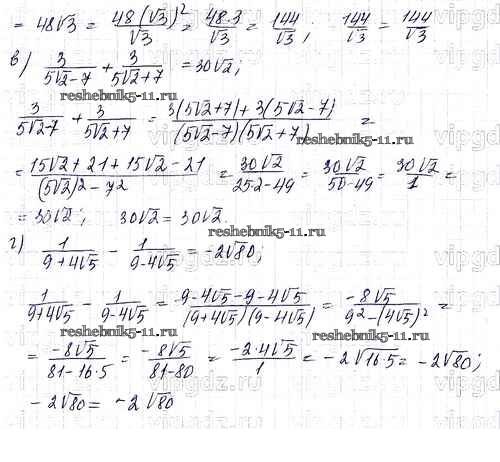 = 48√3 = 48(√3)²/√3 = 48·3/√3 = 144/√3; 144/√3 = 144/√3
в) 3/(5√2-7) + 3/(5√2+7) = 30√2;
reshebnik5-11.ru
3/(5√2-7) + 3/(5√2+7) = (3(5√2+7)+3(5√2-7))/((5√2-7)(5√2+7)) =
reshebnik5-11.ru
= (15√2+21+15√2-21)/((5√2)²-7²) = 30√2/(25·2-49) = 30√2/(50-49) = 30√2/1 =
= 30√2; 30√2 = 30√2.
г) 1/(9+4√5) - 1/(9-4√5) = -2√80;
1/(9+4√5) - 1/(9-4√5) = (9-4√5-9-4√5)/((9+4√5)(9-4√5)) = -8√5/(9²-(4√5)²) =
reshebnik5-11.ru
= -8√5/(81-16·5) = -8√5/(81-80) = -2·4√5/1 = -2√16·5 = -2√80;
reshebnik5-11.ru
-2√80 = -2√80